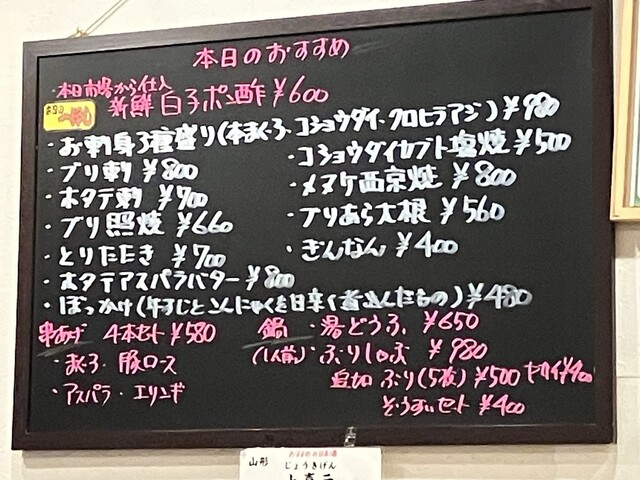 本日のおすすめ
・本日市場から仕入
本日の一押し 新鮮 白子ポン酢 ¥600
・お刺身3種盛り(本まぐろ、コショウダイ、クロヒラアジ) ¥980
・ブリ刺 ¥800
・コショウダイカブト塩焼 ¥500
・ホタテ刺 ¥700
・メヌケ西京焼 ¥800
・ブリ照焼 ¥660
・ブリあら大根 ¥560
・とりたたき ¥700
・ぎんなん ¥400
・ホタテアスパラバター ¥800
・ぼっかけ(牛すじとこんにゃくを甘辛く煮込んだもの) ¥480
串あげ 4本セット ¥580
・まぐろ・豚ロース
・アスパラ・エリンギ
鍋 ・湯どうふ ¥650
(1人前) ・ぶりしゃぶ ¥980
追加 ぶり(5枚) ¥500 ヤサイ¥400
ぞうすいセット ¥400
おすすめ日本酒
山形 じょうきげん
上喜元